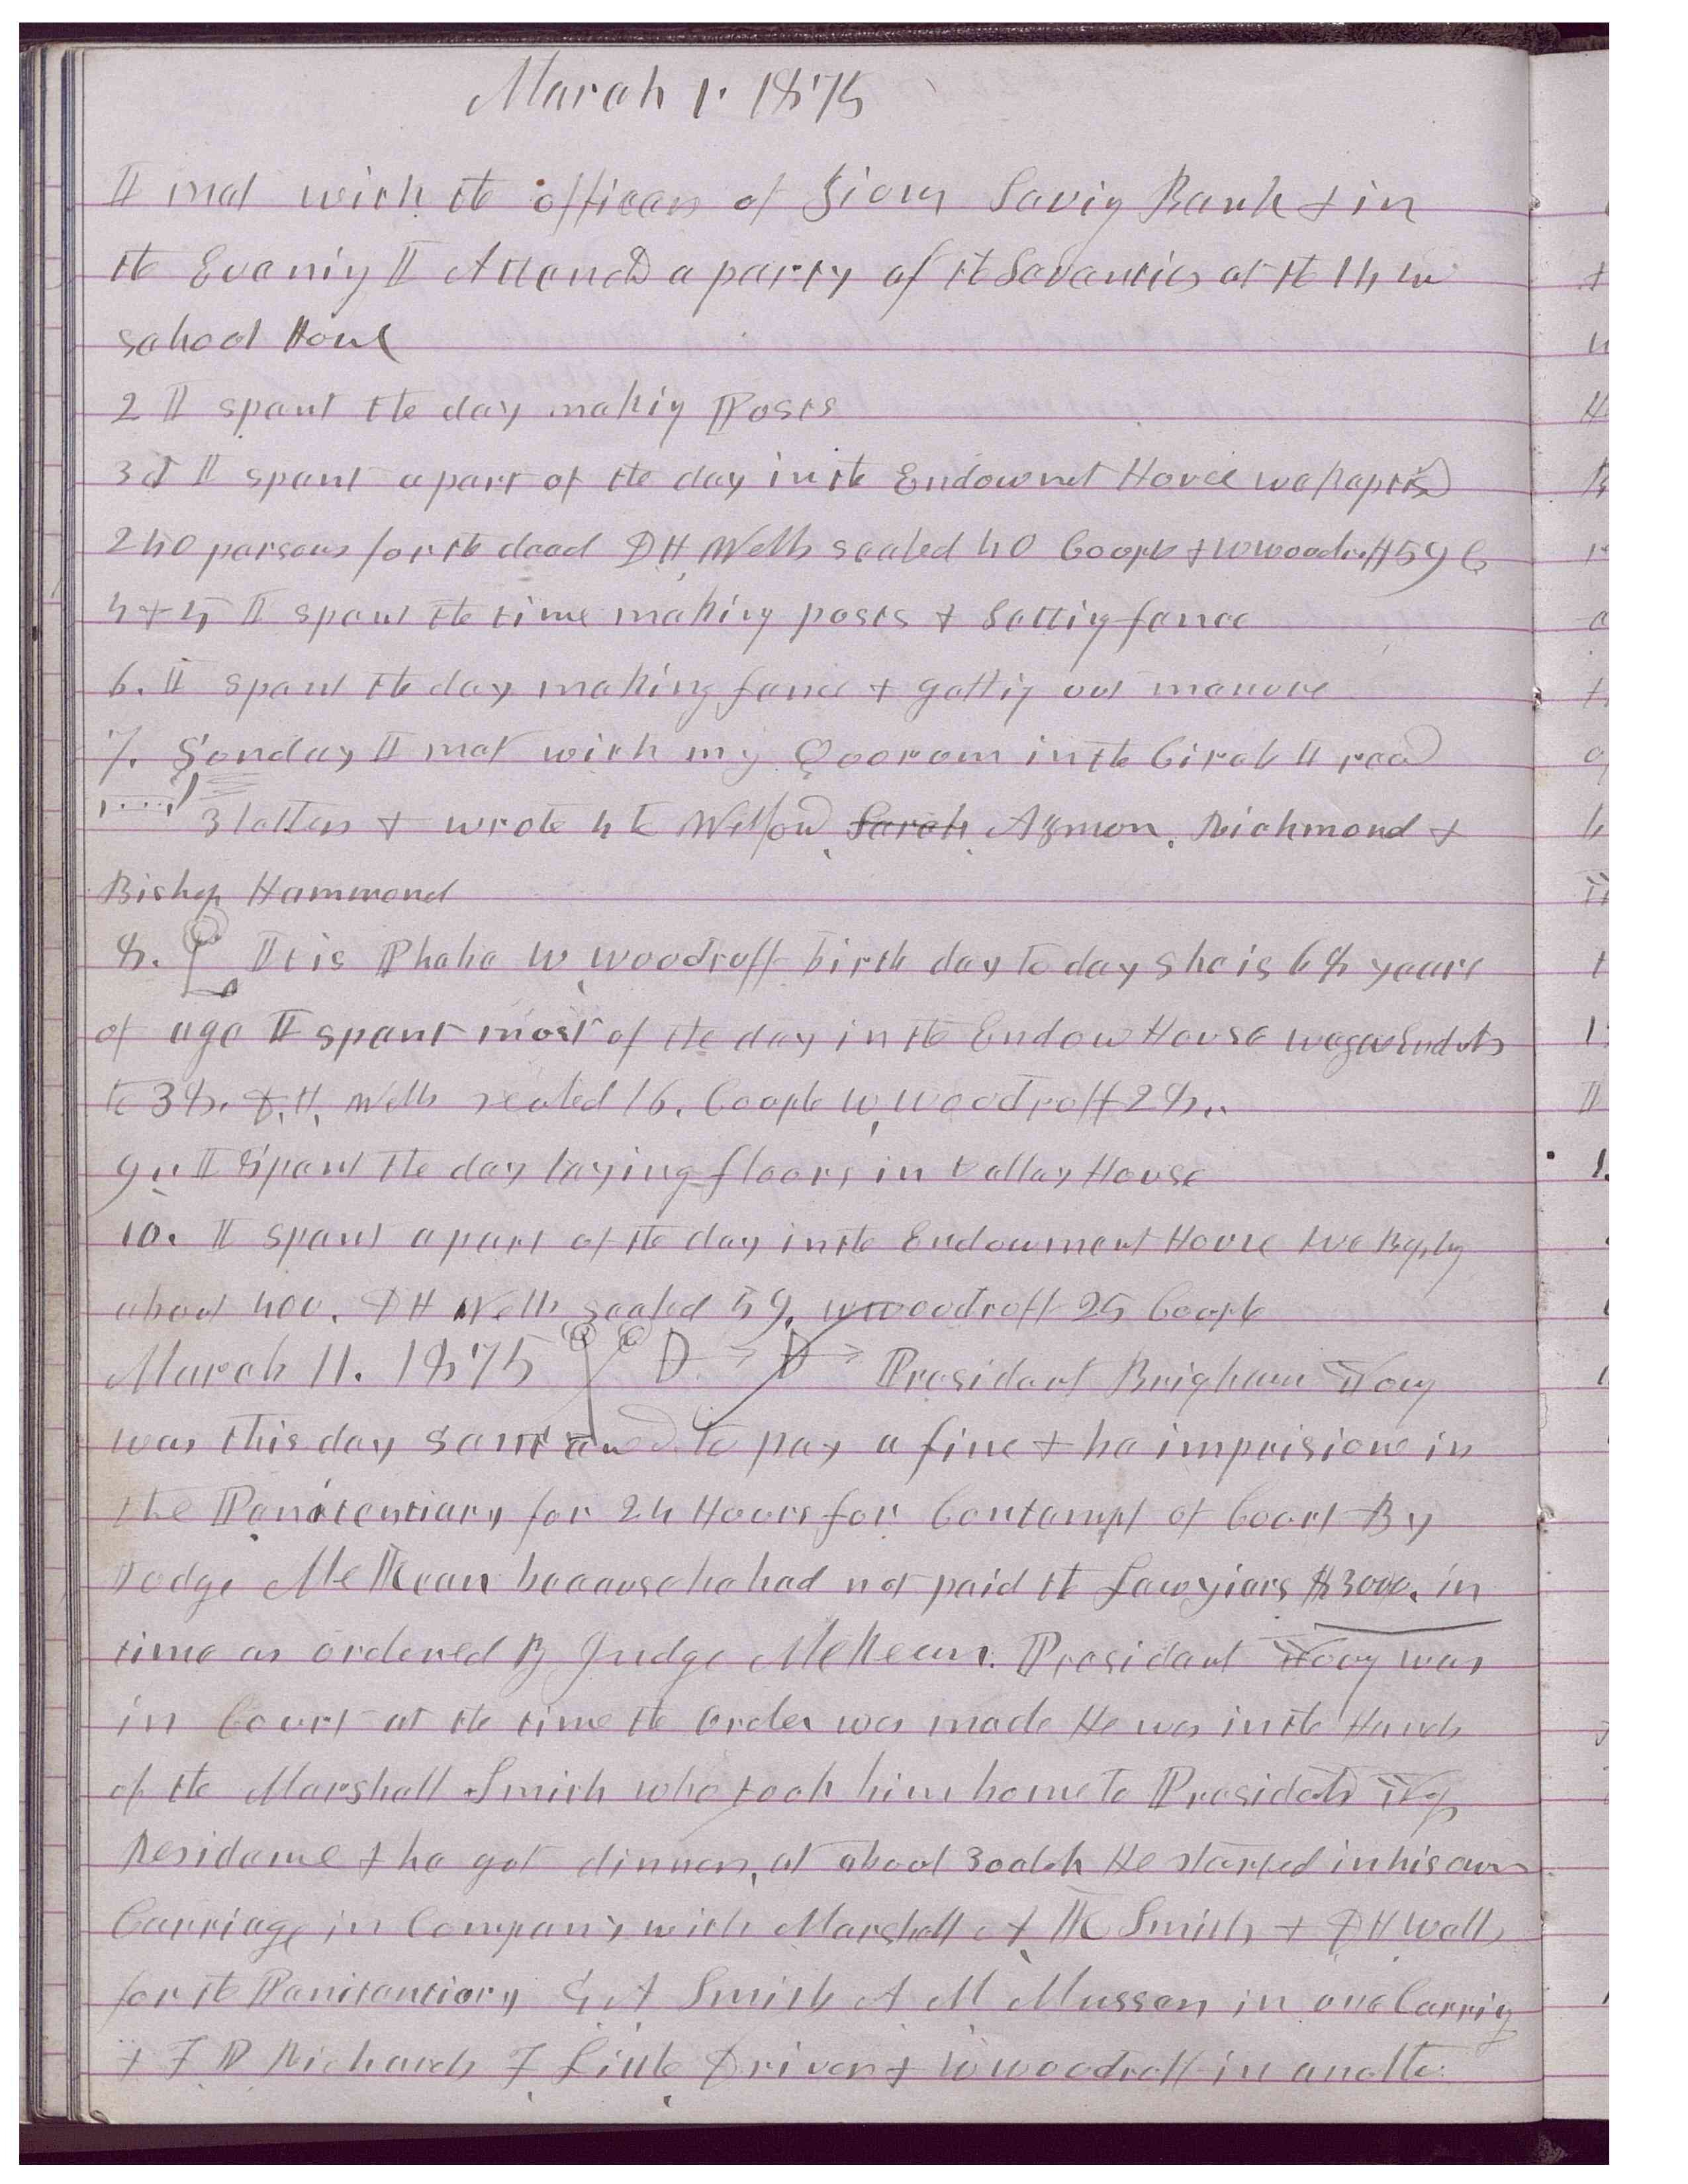 March 1. 1875
I met with the officers of Zions Savig Bank & in
the Evenig I Attend a party of the Seventies at the 14 w
school House
2 I spent the day makig Posts
3d I spent a part of the day in the Endowmet House we baptized
240 persons for the dead D H Wells sealed 40 Coople & W Woodruff 59 C
4 & 5 I spent the time making posts & Settig fence
6. I spent the day making fence & gettig out manure
7. Sunday I met with my Quorum in the Circle I read
3 letters & wrote 4 to Wilford Sarah Azmon, Richmond &
Bishop Hammond
8. It is Phebe W Woodruff birth day to day she is 68 years
of age I spent most of the day in the Endow House we gave Endwts
to 38. D. H. Wells sealed 16. Coople W, Woodruff 28..
9.. I Spent the day laying floors in Valley House
10. I spent a part of the day in the Endowment House we Baptz
about 400. D H Wells sealed 59, W Woodruff 25 Coople
March 11. 1875 D D President Brigham Young
was this day sentanced to pay a fine & be imprisione in
the Penitentiary for 24 Hours for Contempt of Court By
Judge McKean because he had not paid the Lawyiers $3000. in
time as ordered By Judge McKean. President Young was
in Court at the time the order was made He was in the Hands
of the Marshall Smith who took him home to Presidets Yg
Residence & he got dinner, at about 3 oclok He started in his own
Carriage in Company with Marshall A K Smith & D H Wells
for the Penitentiary G A Smith A M Musser in one Carrig
& F D Richards F Little Driver & W Woodruff in anothe